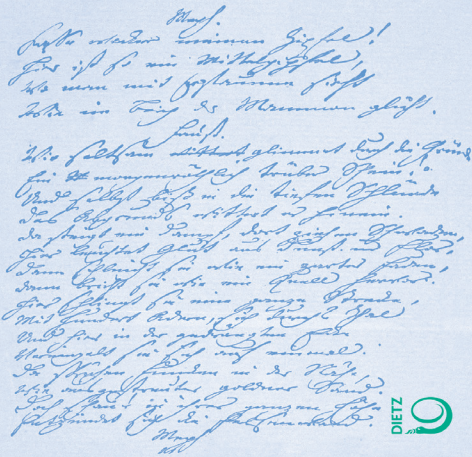 Meph.
Fasse wacker meinen Zipfel!
Hier ist so ein Mittelgipfel,
Wo man mit Erstaunen sieht
Wie im Berg der Mammon glüht.
Faust.
Wie seltsam glimmert durch die Gründe
Ein morgenröthlich trüber Schein!
Und selbst biß in die tiefen Schlünde
Des Abgrunds wittert er hinein.
Da steigt ein Dampf, dort ziehen Schwaden,
Hier leuchtet Glut aus Dunst und Flor,
Dann schleicht sie wie ein zarter Faden,
Dann bricht sie wie ein Quell hervor.
Hier schlingt sie eine ganze Strecke,
Mit hundert Adern, sich durchs Thal
Und hier in der gedrängten Ecke
Vereinzelt sie sich auf einmal.
Da sprühen Funken in der Nähe,
Wie ausgestreuter goldner Sand.
Doch schau! in ihrer ganzen Höhe
Entzündet sich die Felsenwand.
Meph
DIETZ